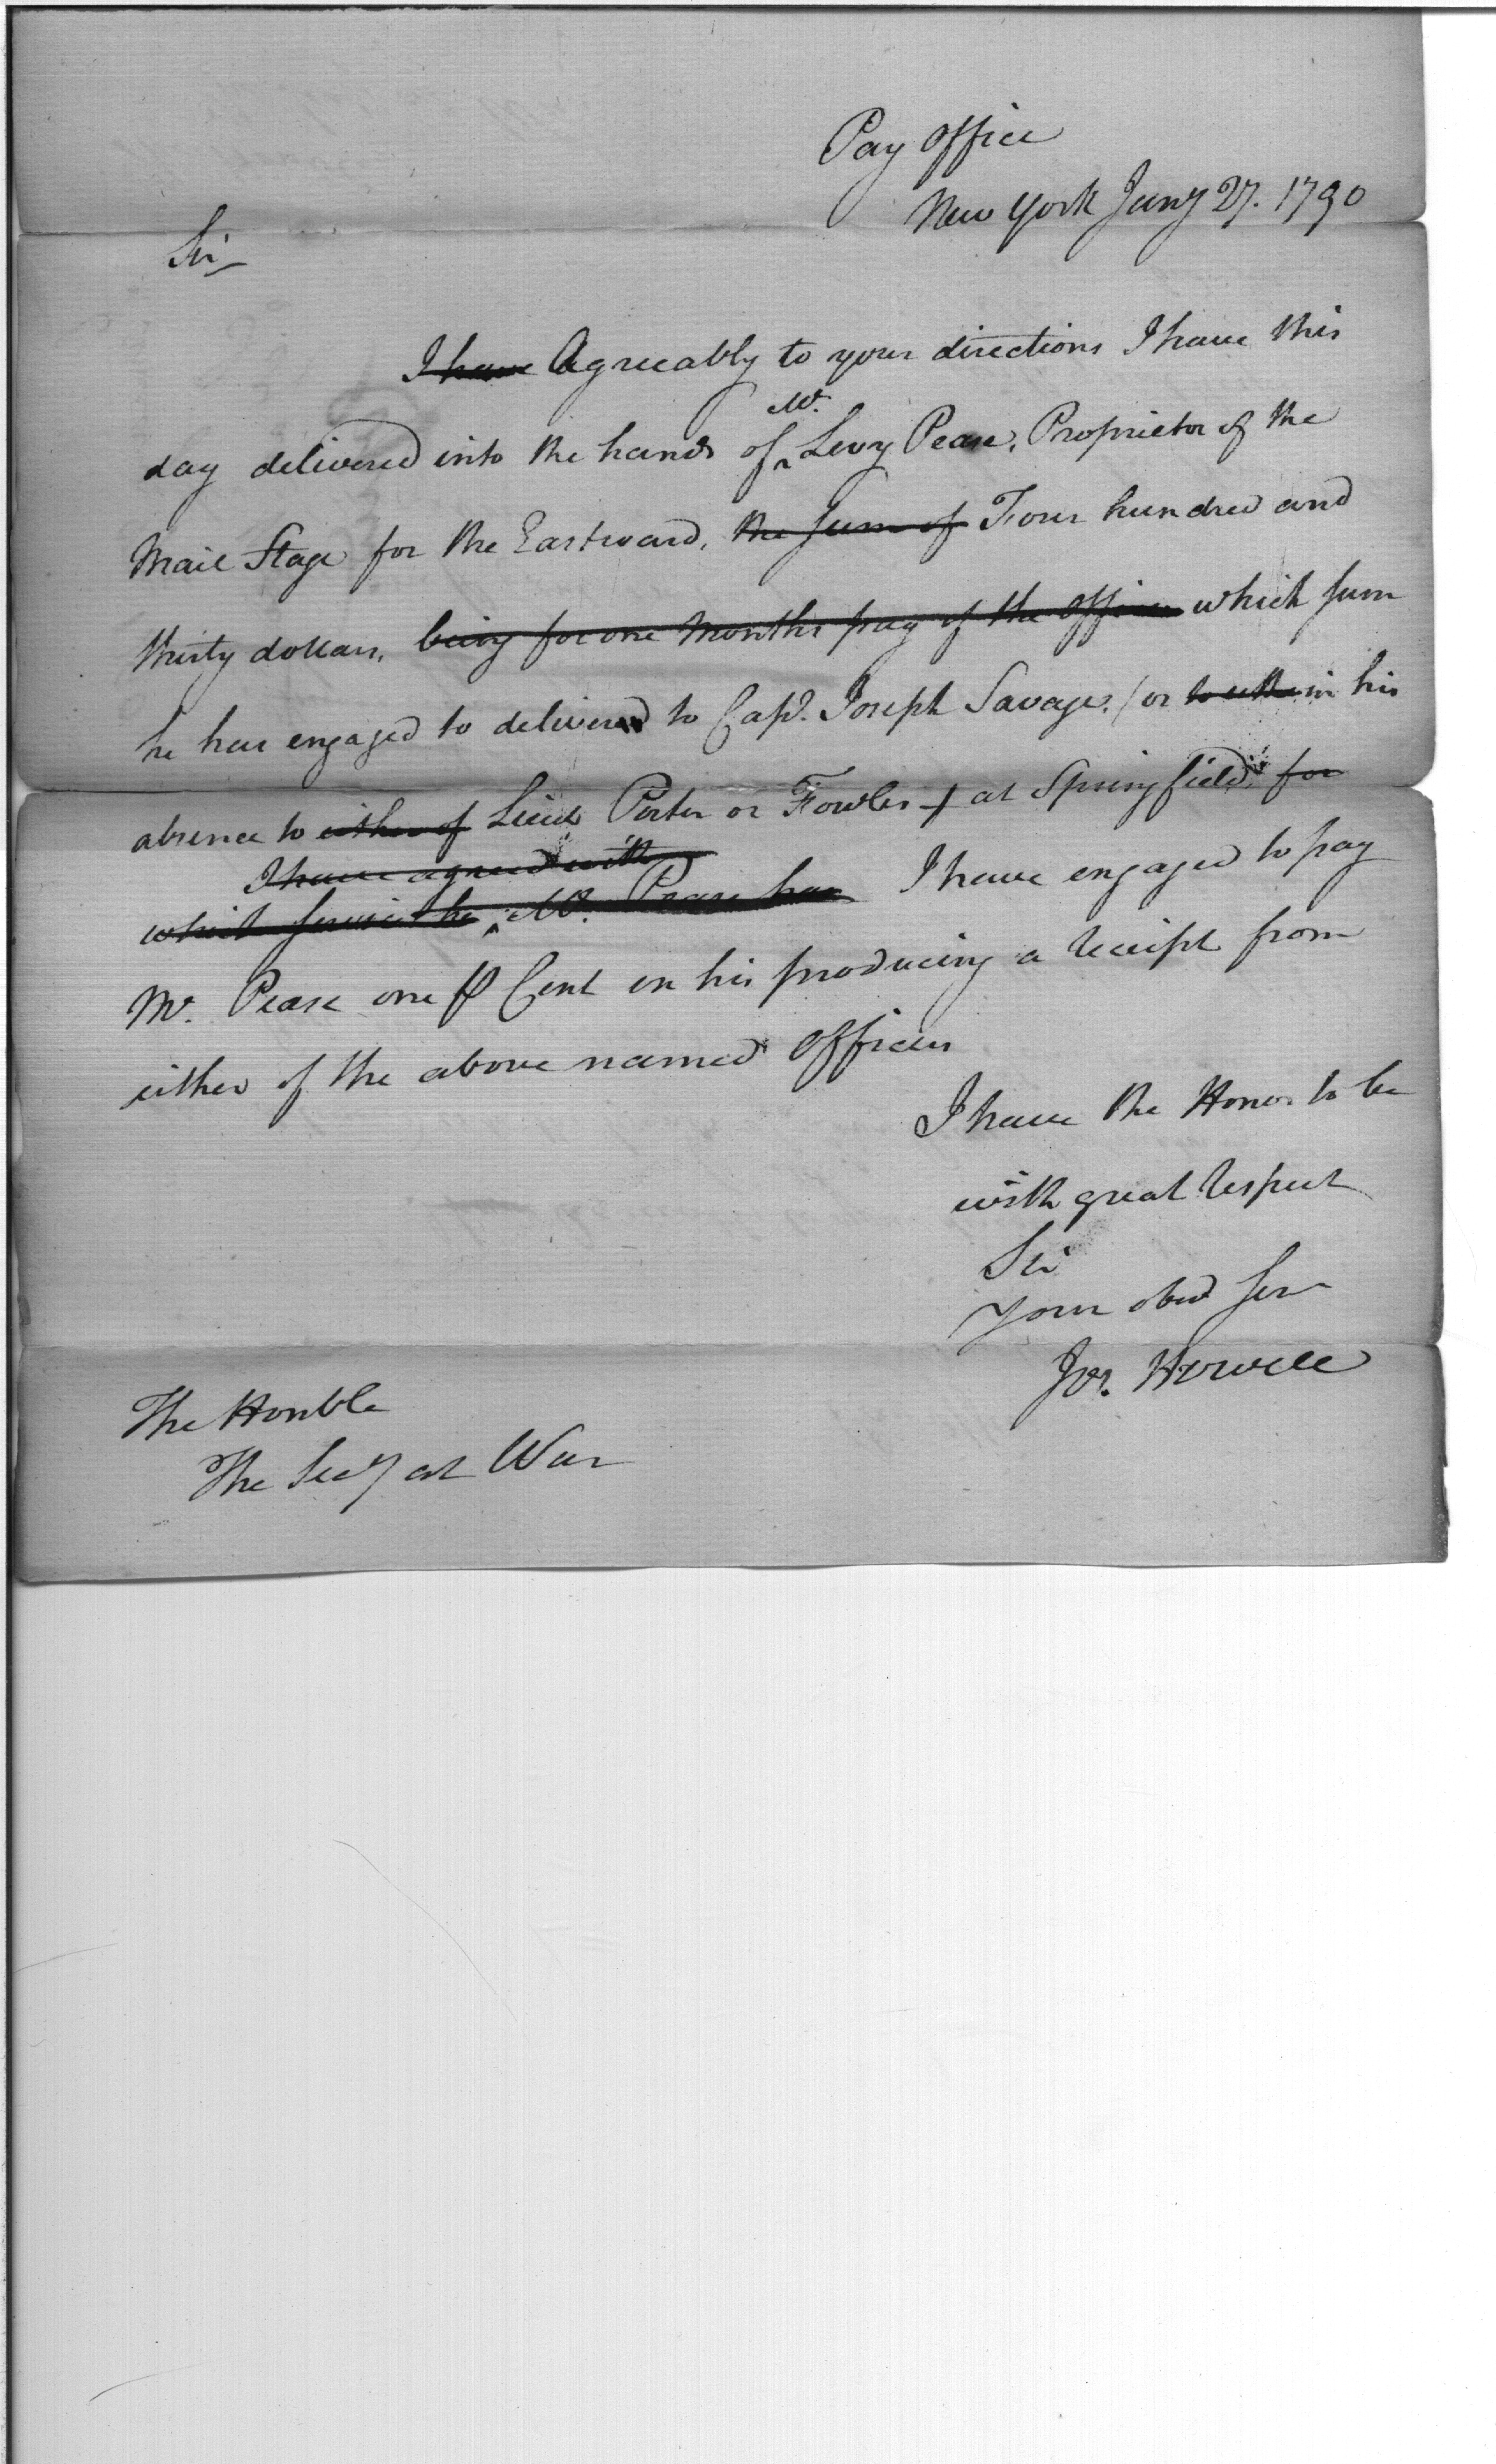 Pay Office
New York Jany 27. 1790
Sir
I have Agreeably to your directions I have this
Mr.
day delivered into the hands of Levy Pease, Proprietor of the
Mail Stage for the Eastward, the sum of Four hundred and
thirty dollars, being for one Months pay of the Officers which sum
he has engaged to deliver to Capt. Joseph Savage, (or in his
absence to either of Lieuts Porter or Fowler) at Springfield, for
I have agreed with
which service he Mr. Pease has I have engaged to pay
Mr. Pease one ⅌ Cent on his producing a receipt from
either of the above named Officers
I have the Honor to be
with great respect
Sir
Your obed Ser
Jos. Howell
The Honble
The Secy at War